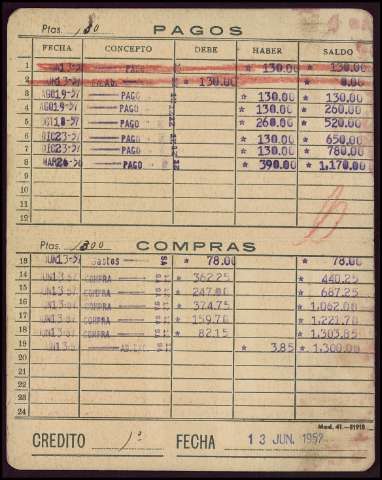 Ptas. 130 PAGOS
FECHA CONCEPTO DEBE HABER SALDO
1 JUN13-57 PAGO * 130.00 * 130.00
2 JUN13-57 * 130.00 * 0.00
3 AGO19-57 PAGO * 130.00 * 130.00
4 AGO19-57 PAGO * 130.00 * 260.00
5 OCT18-57 PAGO * 260.00 * 520.00
6 DIC23-57 PAGO * 130.00 * 650.00
7 DIC23-57 PAGO * 130.00 * 780.00
8 MAR26-58 PAGO * 390.00 * 1,170.00
9
10
11
12
Ptas. 1300 COMPRAS
13 JUN13-57 Gastos SA * 78.00 * 78.00
14 JUN13-57 COMPRA * 362.25 * 440.25
15 JUN13-57 COMPRA * 247.00 * 687.25
16 JUN13-57 COMPRA * 374.75 * 1,062.00
17 JUN13-57 COMPRA * 159.70 * 1,221.70
18 JUN13-57 COMPRA * 82.15 * 1,303.85
19 JUN13-57 * 3.85 * 1,300.00
20
21
22
23
24
Mod. 41.-51918
CREDITO 1º FECHA 13 JUN. 1957